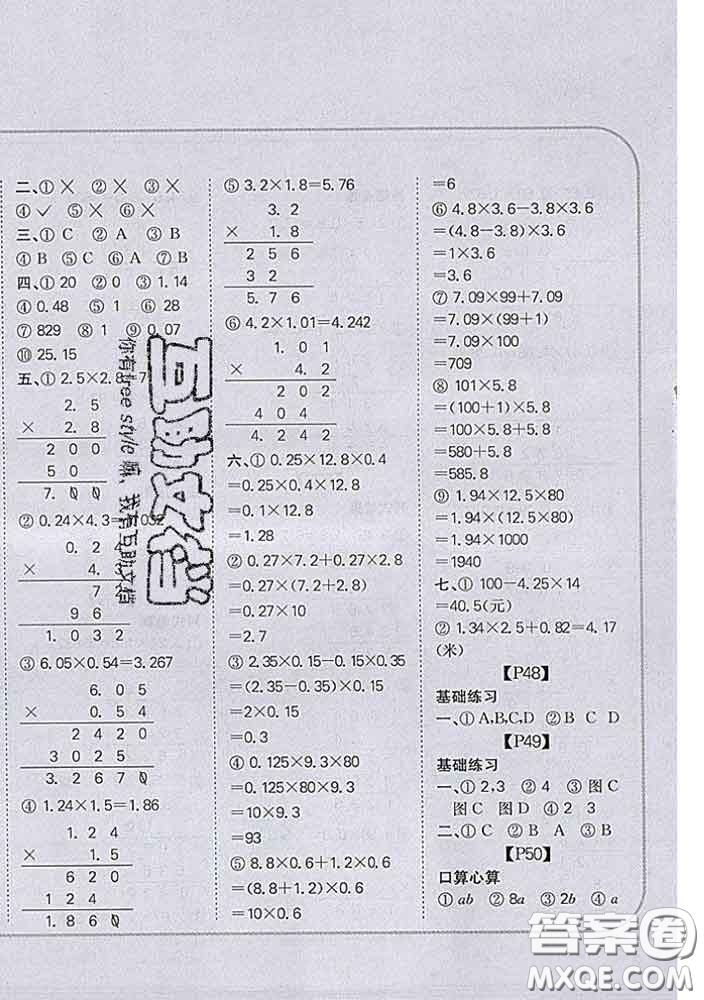 二、①× ②× ③×
④✓ ⑤× ⑥×
三、①C ②A ③B
④B ⑤C ⑥A ⑦B
四、①20 ②0 ③1.14
④0.48 ⑤1 ⑥28
⑦829 ⑧1 ⑨0.07
⑩25.15
五、①2.5×2.8=7
2.5
× 2.8
2 0 0
5 0
7.0 0
②0.24×4.3=1.032
0.2
× 4.
7
9 6
1.0 3 2
③6.05×0.54=3.267
6.0 5
× 0.5 4
2 4 2 0
3 0 2 5
3.2 6 7 0
④1.24×1.5=1.86
1.2 4
× 1.5
6 2 0
1 2 4
1.8 6 0
⑤3.2×1.8=5.76
3.2
× 1.8
2 5 6
3 2
5.7 6
⑥4.2×1.01=4.242
1.0 1
× 4.2
2 0 2
4 0 4
4.2 4 2
六、①0.25×12.8×0.4
=0.25×0.4×12.8
=0.1×12.8
=1.28
②0.27×7.2+0.27×2.8
=0.27×(7.2+2.8)
=0.27×10
=2.7
③2.35×0.15-0.15×0.35
=(2.35-0.35)×0.15
=2×0.15
=0.3
④0.125×9.3×80
=0.125×80×9.3
=10×9.3
=93
⑤8.8×0.6+1.2×0.6
=(8.8+1.2)×0.6
=10×0.6
=6
⑥4.8×3.6-3.8×3.6
=(4.8-3.8)×3.6
=1×3.6
=3.6
⑦7.09×99+7.09
=7.09×(99+1)
=7.09×100
=709
⑧101×5.8
=(100+1)×5.8
=100×5.8+5.8
=580+5.8
=585.8
⑨1.94×12.5×80
=1.94×(12.5×80)
=1.94×1000
=1940
七、①100-4.25×14
=40.5(元)
②1.34×2.5+0.82=4.17
(米)
【P48】
基础练习
一、①A,B,C,D ②B C D
【P49】
基础练习
一、①2,3 ②4 ③图C
图C 图D ④2 3
二、①C ②B ③B
【P50】
口算心算
①ab ②8a ③2b ④a
互助文档
你有free style 嘛，我有互助文档
答案圈
MXQE.COM